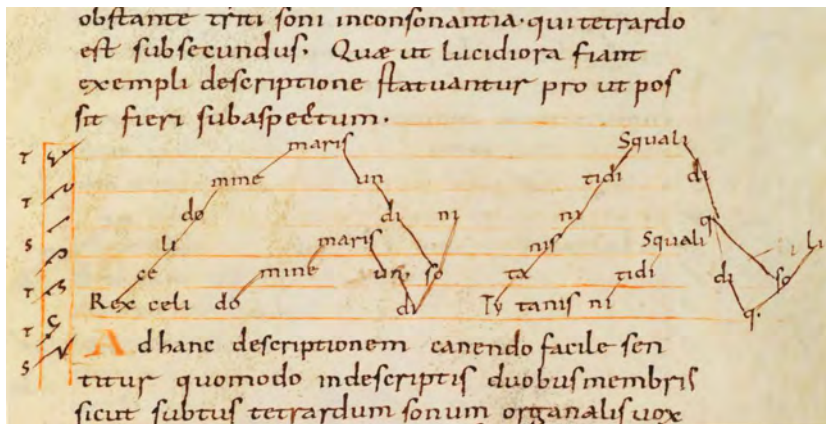 obstante triti soni inconsonantia· qui tetrardo
est subsecundus. Quæ ut lucidiora fiant
exempli descriptione statuantur pro ut pos
sit fieri subaspectum.
T maris Squali
T mine un tidi di
do di ni ni q
S li maris nis Squali li
T ce mine un so ta tidi di so
Rex celi do di Ty tanis ni q.
T
S
Ad hanc descriptionem canendo facile sen
titur quomodo indescriptis duobus membris
sicut subtus tetrardum sonum organalis uox